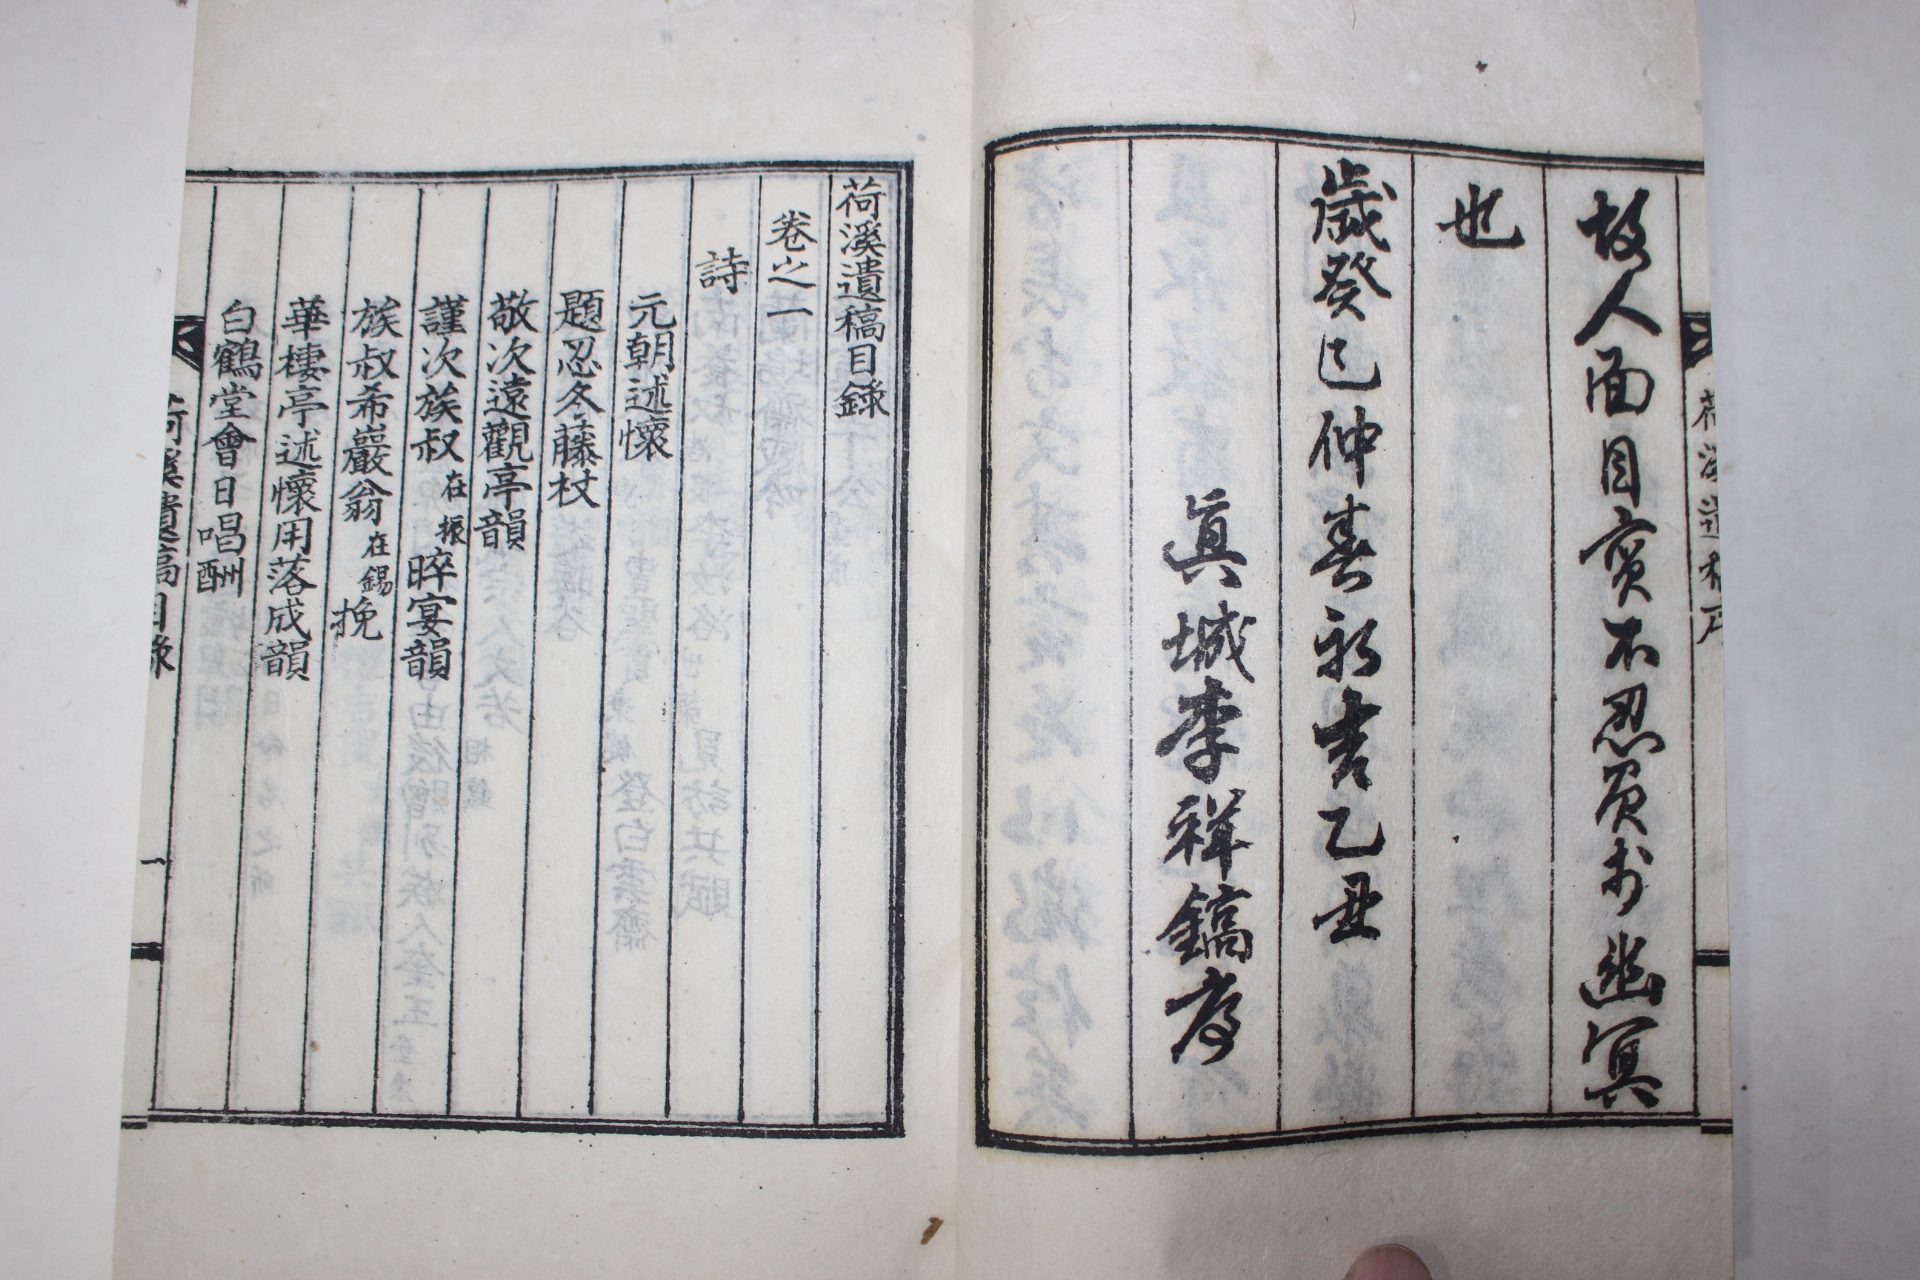 荷溪遺稿序
故人面目寘不忍負於幽冥
也
歲癸巳仲春初吉乙丑
眞城李祥鎬序
荷溪遺稿目錄
卷之一
詩
元朝述懷
題忍冬藤杖
敬次遠觀亭韻
謹次族叔在振晬宴韻
族叔希巖翁在錫挽
華棲亭述懷用落成韻
白鶴堂會日唱酬
荷溪遺稿目錄
一